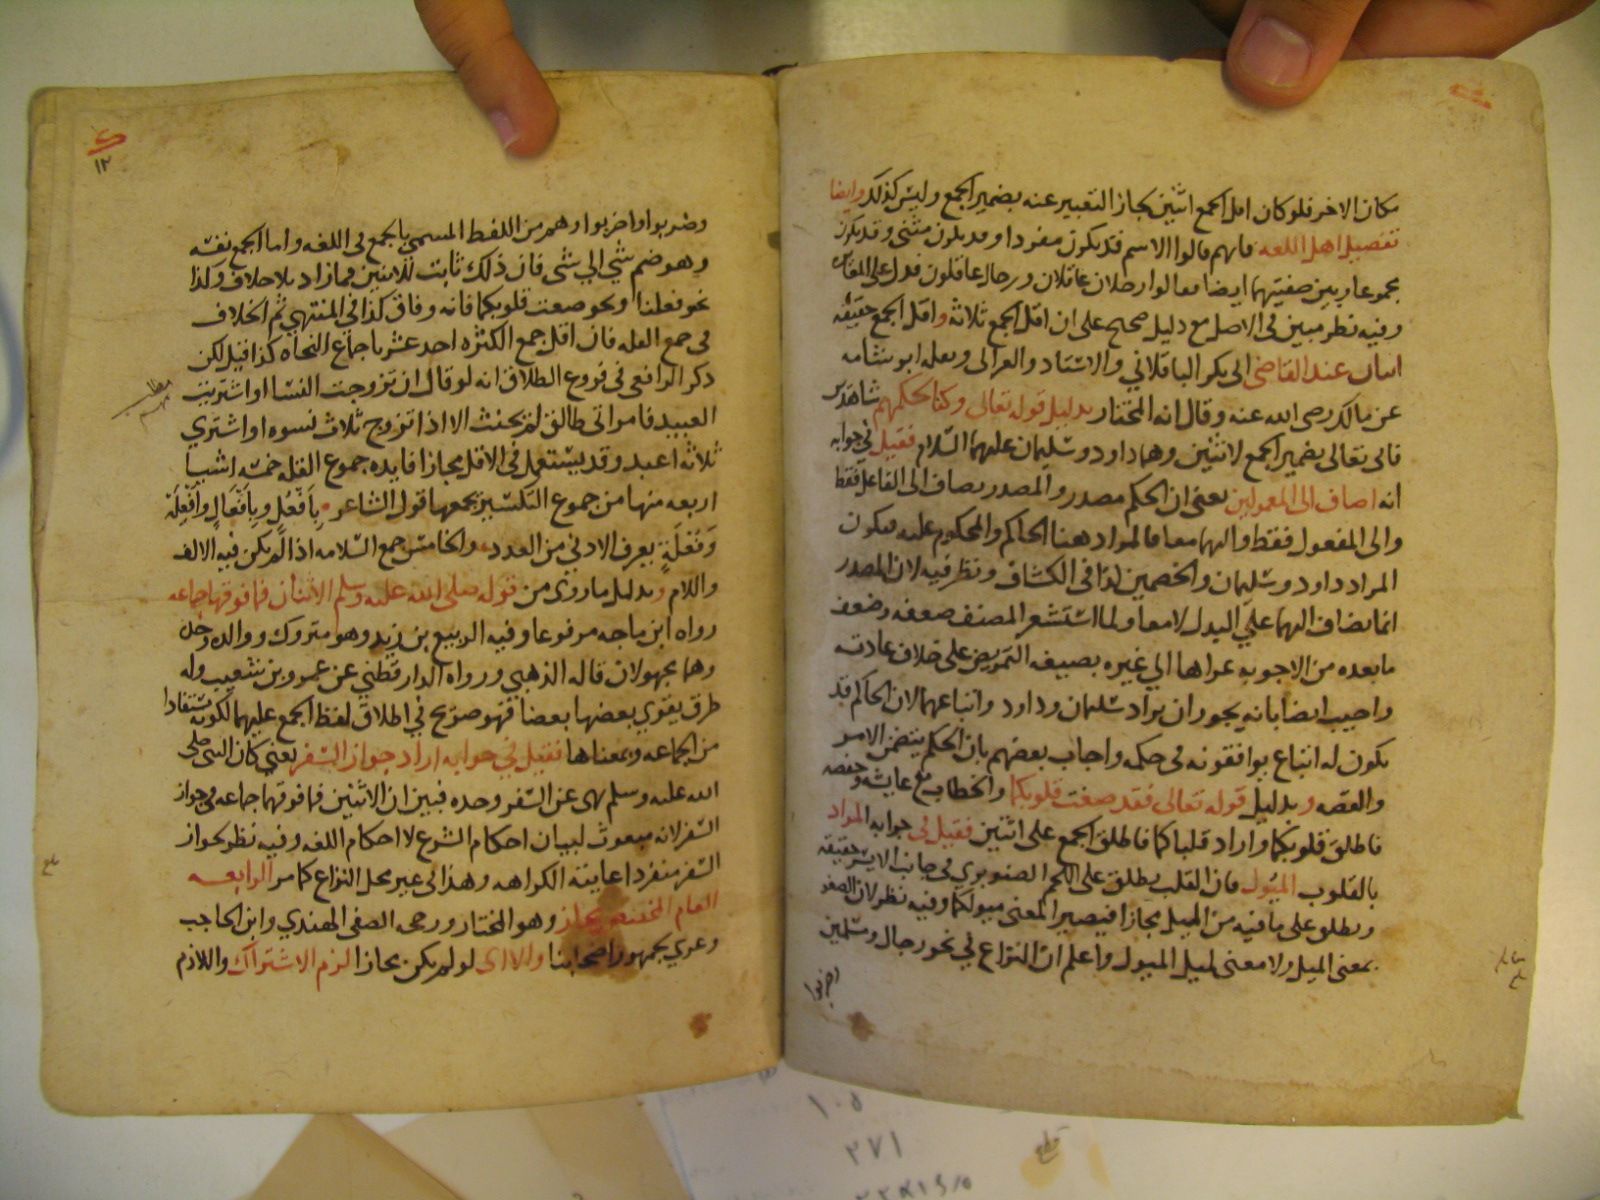 مكان الاخر فلو كان اقل الجمع اثنين لجاز التعبير عنه بضمير الجمع وليس كذلك وايضا
تفصيل اهل اللغه فانهم قالوا الاسم قد يكون مفردا وقد يكون مثنى وقد يكون
مجموعا وبين صفتيهما ايضا فقالوا رجلان عاقلان ورجال عاقلون فدل على
وفيه نظر مبين في الاصل مع دليل صحيح على ان اقل الجمع ثلاثة واقل الجمع حقيقة
اثنان عند القاضي ابى بكر الباقلاني والاستاد والغزالى ونقله ابو شامه
عن مالك رضى الله عنه وقال انه المختار بدليل قوله تعالى وكنا لحكمهم شاهدين
فاتى تعالى بضمير الجمع لاثنين وهما داود وسليمان عليهما السلام فقيل في جوابه
انه اضاف الى المعمولين يعنى ان الحكم مصدر والمصدر يضاف الى الفاعل فقط
والى المفعول فقط واليهما معا فالمراد هنا الحاكم والمحكوم عليه فيكون
المراد داود وسليمان والخصمين كذا في الكشاف ونظر فيه لان المصدر
انما يضاف اليهما على البدل لا معا ولما استشعر المصنف ضعفه وضعف
ما بعده من الاجوبه عزاها الي غيره بصيغه التمريض على خلاف عادته
واجيب ايضا بانه يجوز ان يراد سليمان وداود واتباعهما لان الحاكم قد
يكون له اتباع يوافقونه في حكمه واجاب بعضهم بان الحكم يتضمن الامر
والقصه وبدليل قوله تعالى فقد صغت قلوبكما والخطاب مع عايشه وحفصه
فاطلق قلوبكما واراد قلباكما فاطلق الجمع على اثنين فقيل في جوابه المراد
بالقلوب الميول فان القلب يطلق على اللحم الصنوبري في جانب الايسر حقيقة
ويطلق على ما فيه من الميل مجازا فيصير المعنى ميولكما وفيه نظر لان الصغو
بمعنى الميل ولا معنى لميل الميول واعلم ان النزاع في نحو رجال ومسلمين
١٢
وضربوا واضربوا وهم من اللفظ المسمى بالجمع في اللغه واما الجمع نفسه
وهو ضم شي الي شى فان ذلك ثابت للاثنين فما زاد بلا خلاف وكذا
نحو فعلنا ونحو صغت قلوبكما فانه وفاق كذا في المنتهي ثم الخلاف
في جمع القله فان اقل جمع الكثره احد عشر باجماع النحاه كذا قيل لكن
ذكر الرافعى في فروع الطلاق انه لو قال ان تزوجت النسا او اشتريت
العبيد فامراتى طالق لم يحنث الا اذا تزوج ثلاث نسوه او اشترى
ثلاثه اعبد وقد يستعمل في الاقل مجازا فايده جموع القله خمسه اشيا
اربعه منها من جموع التكسير يجمعها قول الشاعر بافعل وبافعال وافعلة
وفعلة يعرف الادنى من العدد والخامس جمع السلامه اذا لم يكن فيه الالف
واللام وبدليل ما روى من قوله صلى الله عليه وسلم الاثنان فما فوقها جماعه
رواه ابن ماجه مرفوعا وفيه الربيع بن زيد وهو متروك ووالده وجده
وهما مجهولان قاله الذهبي ورواه الدارقطني عن عمرو بن شعيب وله
طرق يقوي بعضها بعضا فهو صريح في اطلاق لفظ الجمع عليهما لكونه مستفادا
من الجماعه وبمعناها فقيل في جوابه اراد جواز السفر يعني كان النبي صلى
الله عليه وسلم نهى عن السفر وحده فبين ان الاثنين فما فوقها جماعه في جواز
السفر لانه مبعوث لبيان احكام الشرع لا احكام اللغه وفيه نظر لجواز
السفر منفردا غايته الكراهه وهذا في غير محل النزاع كما مر الرابعه
العام المخصص مجاز وهو المختار ورجحه الصفى الهندي وابن الحاجب
وعزي لجمهور اصحابنا والا اى لو لم يكن مجازا لزم الاشتراك واللازم
١٠٥
٢٧١